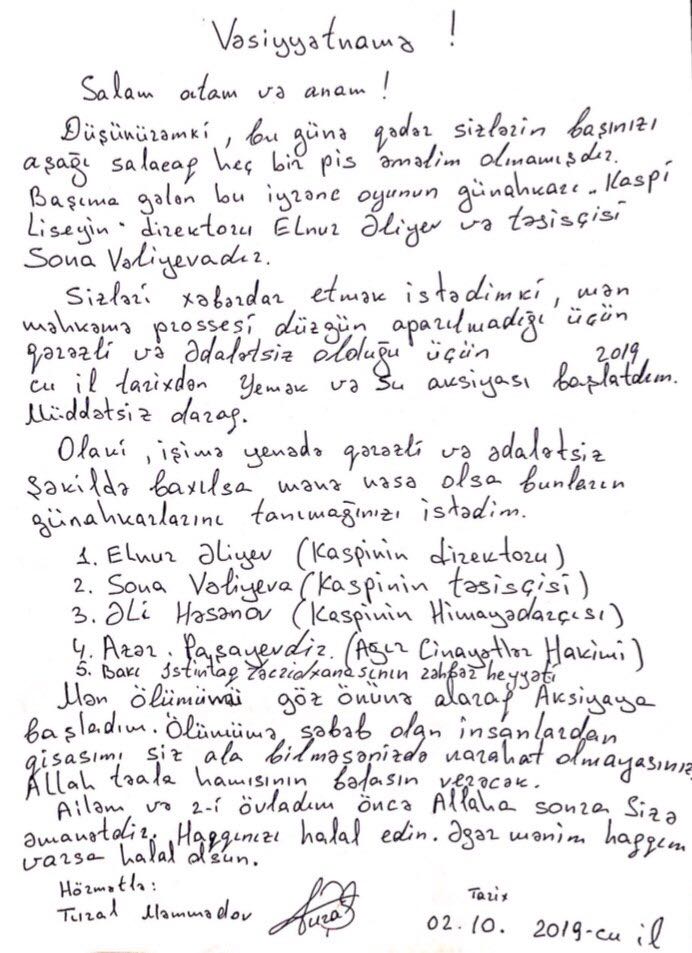 Vəsiyyətnamə !
Salam atam və anam !
Düşünürəmki, bu günə qədər sizlərin başınızı
aşağı salacag heç bir pis əməlim olmamışdır.
Başıma gələn bu iyrənc oyunun günahkarı „Kaspi
Liseyin" direktoru Elnur Əliyev və təsisçisi
Sona Vəliyevadır.
Sizləri xəbərdar etmək istədimki, mən
məhkəmə prossesi düzgün aparılmadığı üçün
qərəzli və Ədalətsiz olduğu üçün 2019
cu il tarixdən Yemək və Su aksiyası başlatdım.
Müddətsiz olarag.
Olaki, işimə yenədə qərəzli və ədalətsiz
şəkildə baxılsa mənə nəsə olsa bunların
günahkarlarını tanımağınızı istədim.
1. Elnur Əliyev (Kaspinin direktoru)
2. Sona Vəliyeva (Kaspinin təsisçisi)
3. Əli Həsənov (Kaspinin Himayədarçısı)
4. Azər. Paşayevdir. (Ağır Cinayətlər Hakimi)
5. Bakı İstintag Təcridxanasının rəhbər heyyəti
Mən ölümümü göz önünə alarag Aksiyaya
başladım. Ölümümə səbəb olan insanlardan
qisasımı siz ala bilməsənizdə narahat olmayasınız,
Allah təala hamısının bəlasın verəcək.
Ailəm və 2-i övladım öncə Allaha sonra Sizə
əmanətdir. Haggınızı halal edin. Əgər mənim haggım
varsa halal olsun.
Hörmətlə:
Tural Məmmədov
Tarix
02.10. 2019-cu il